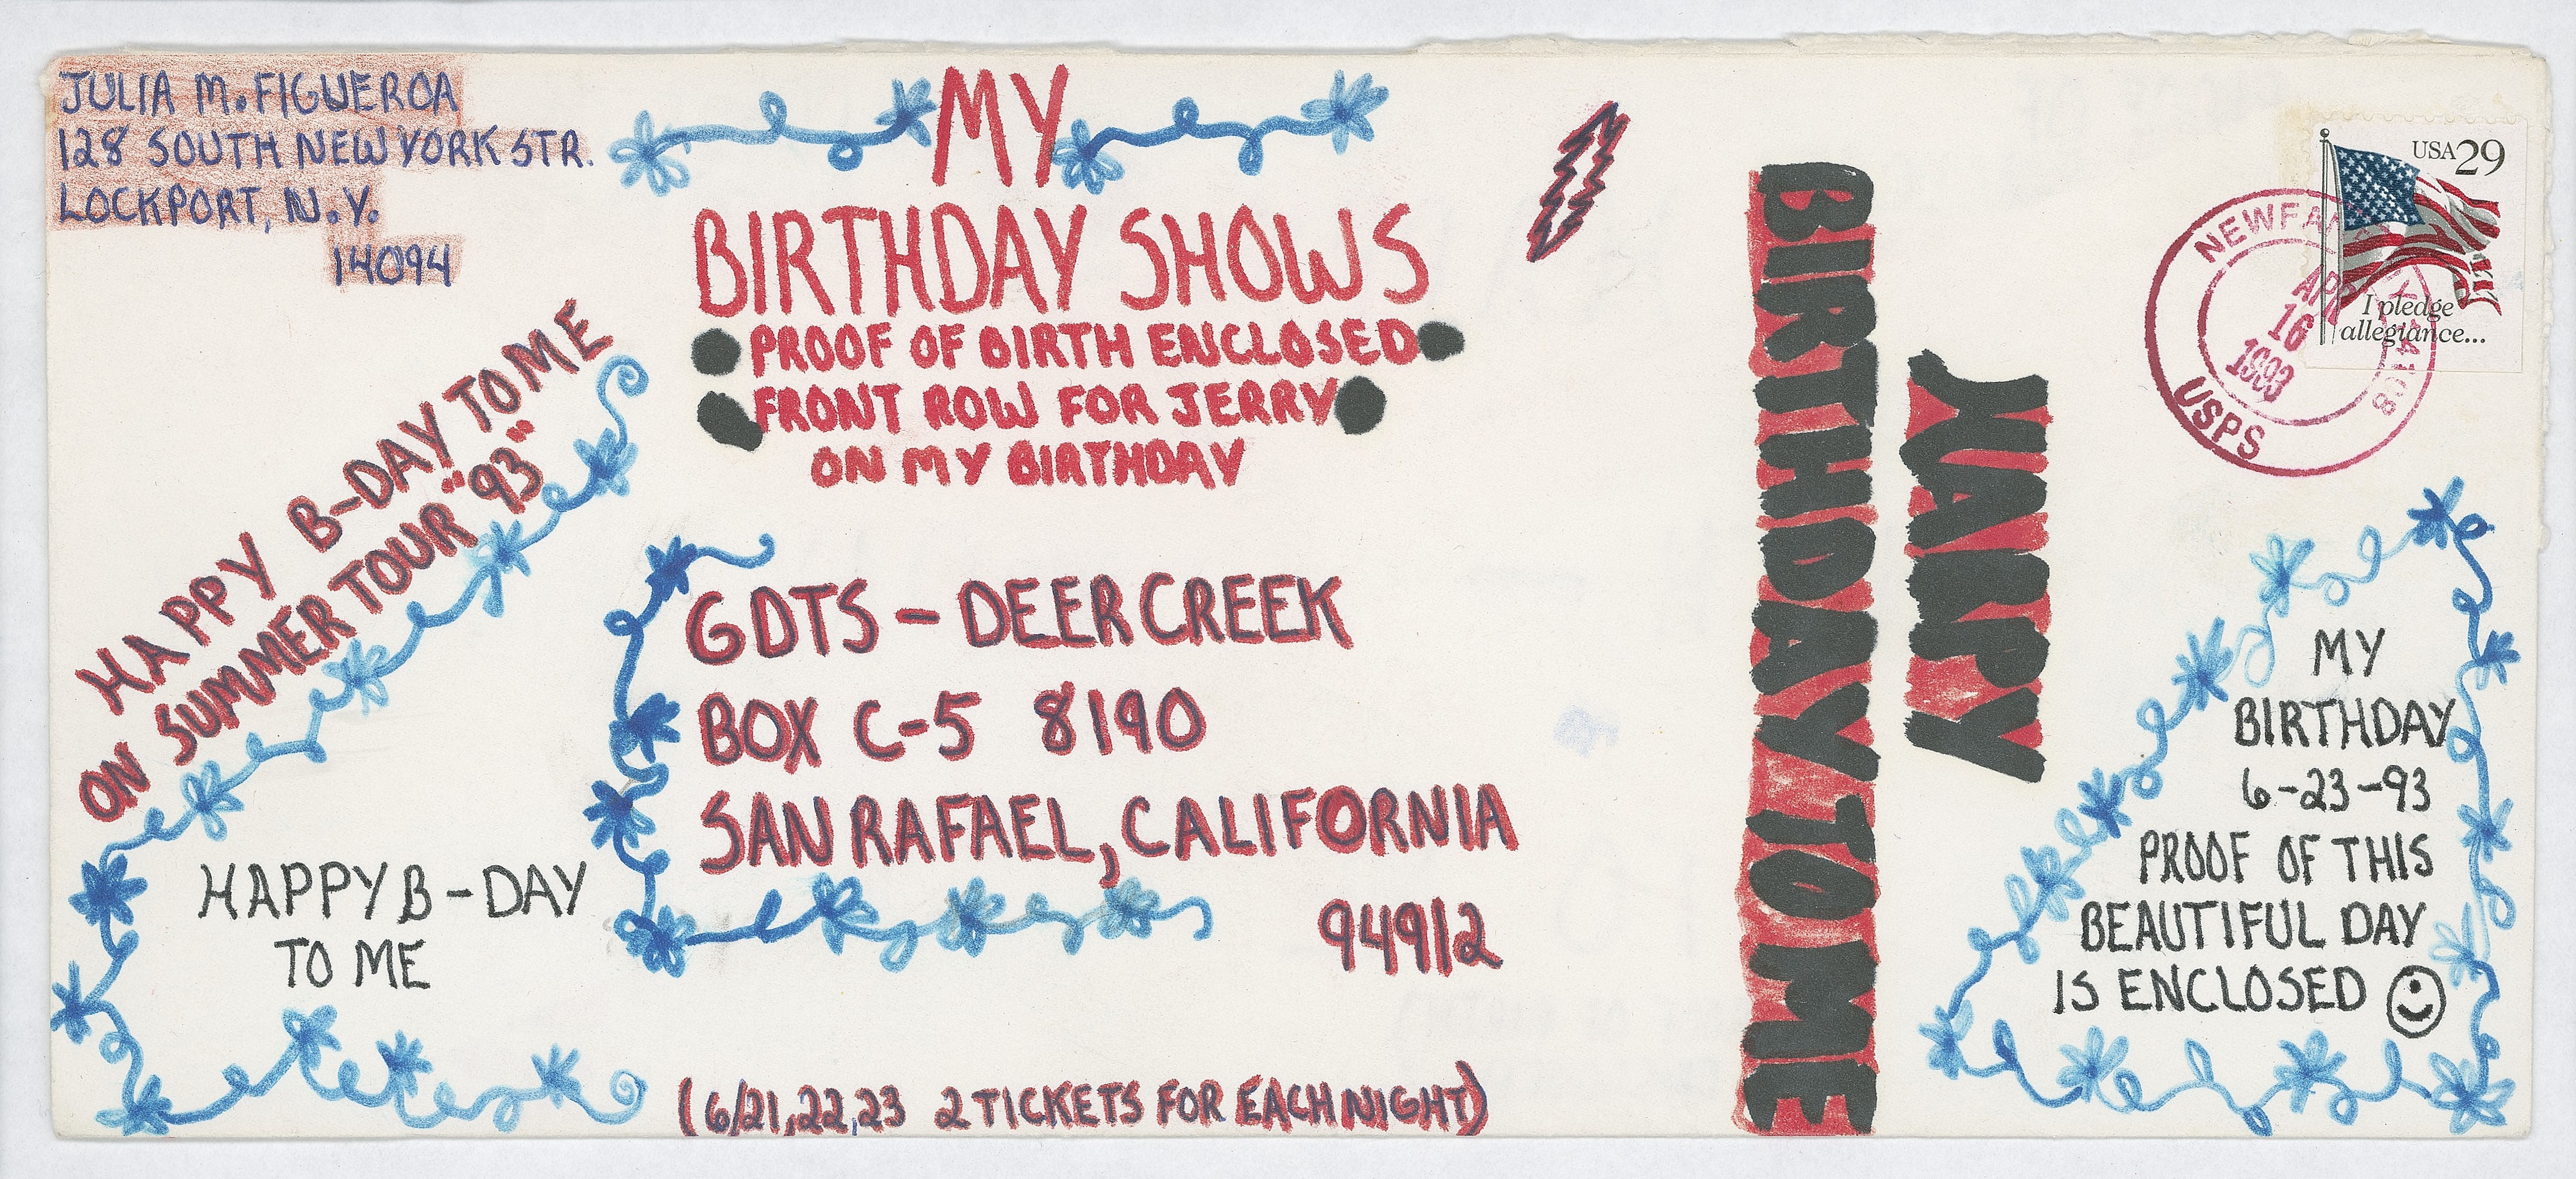 JULIA M. FIGUEROA
128 SOUTH NEW YORK STR.
LOCKPORT, N.Y.
14094
MY
BIRTHDAY SHOWS
PROOF OF BIRTH ENCLOSED
FRONT ROW FOR JERRY
ON MY BIRTHDAY
HAPPY B-DAY TO ME
ON SUMMER TOUR "93"
HAPPY B-DAY
TO ME
GDTS - DEER CREEK
BOX C-5 8190
SAN RAFAEL, CALIFORNIA
94912
(6/21,22,23 2 TICKETS FOR EACH NIGHT)
HAPPY
BIRTHDAY TO ME
USA 29
I pledge
allegiance...
NEWFANE NY 14108
APR
16
1993
USPS
MY
BIRTHDAY
6-23-93
PROOF OF THIS
BEAUTIFUL DAY
IS ENCLOSED